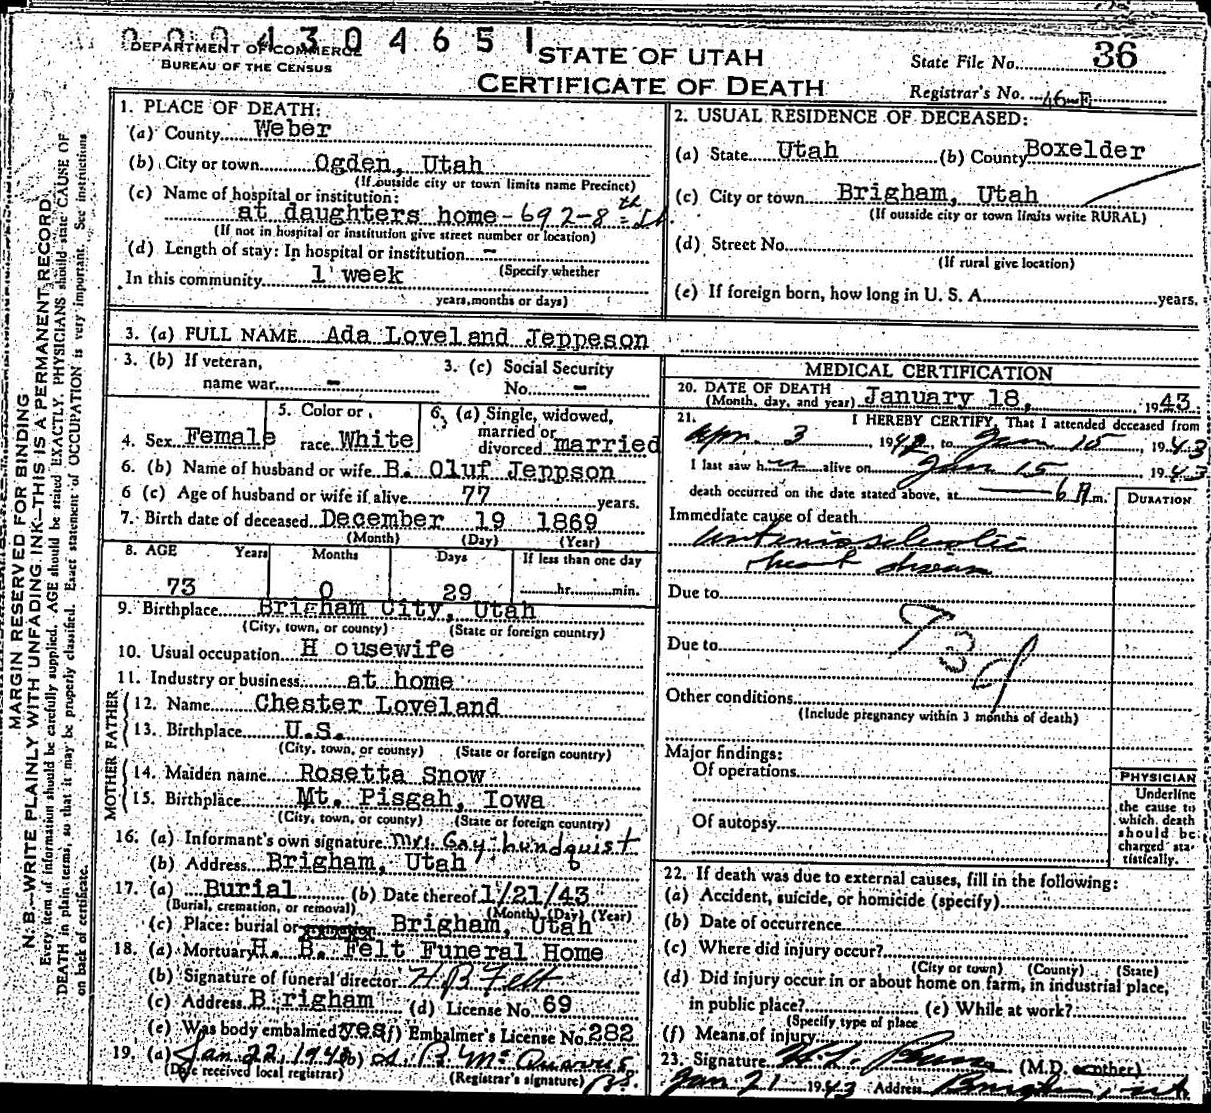 0004304651
DEPARTMENT OF COMMERCE
BUREAU OF THE CENSUS
STATE OF UTAH
CERTIFICATE OF DEATH
State File No. 36
Registrar's No. 46-E
MARGIN RESERVED FOR BINDING
N. B.—WRITE PLAINLY WITH UNFADING INK—THIS IS A PERMANENT RECORD
Every item of information should be carefully supplied. AGE should be stated EXACTLY. PHYSICIANS should state CAUSE OF
DEATH in plain terms, so that it may be properly classified. Exact statement of OCCUPATION is very important. See instructions
on back of certificate.
1. PLACE OF DEATH:
(a) County Weber
(b) City or town Ogden, Utah
(If outside city or town limits name Precinct)
(c) Name of hospital or institution:
at daughters home - 692-8th St.
(If not in hospital or institution give street number or location)
(d) Length of stay: In hospital or institution -
(Specify whether
In this community 1 week
years, months or days)
2. USUAL RESIDENCE OF DECEASED:
(a) State Utah (b) County Boxelder
(c) City or town Brigham, Utah
(If outside city or town limits write RURAL)
(d) Street No.
(If rural give location)
(e) If foreign born, how long in U. S. A. years.
3. (a) FULL NAME Ada Loveland Jeppeson
3. (b) If veteran, 3. (c) Social Security
name war - No. -
4. Sex Female 5. Color or race White 6. (a) Single, widowed, married or divorced married
6. (b) Name of husband or wife B. Oluf Jeppson
6 (c) Age of husband or wife if alive 77 years.
7. Birth date of deceased December 19 1869
(Month) (Day) (Year)
8. AGE Years Months Days If less than one day
73 0 29 hr. min.
9. Birthplace Brigham City, Utah
(City, town, or county) (State or foreign country)
10. Usual occupation H ousewife
11. Industry or business at home
FATHER
12. Name Chester Loveland
13. Birthplace U.S.
(City, town, or county) (State or foreign country)
MOTHER
14. Maiden name Rosetta Snow
15. Birthplace Mt. Pisgah, Iowa
(City, town, or county) (State or foreign country)
16. (a) Informant's own signature Mrs. Gay Lundquist
(b) Address Brigham, Utah
17. (a) Burial (b) Date thereof 1/21/43
(Burial, cremation, or removal) (Month) (Day) (Year)
(c) Place: burial or Brigham, Utah
18. (a) Mortuary H. B. Felt Funeral Home
(b) Signature of funeral director H B Felt
(c) Address B righam (d) License No. 69
(e) Was body embalmed yes (f) Embalmer's License No. 282
19. (a) Jan. 22, 1943 (b)
(Date received local registrar) (Registrar's signature)
MEDICAL CERTIFICATION
20. DATE OF DEATH
(Month, day, and year) January 18, 1943
21. I HEREBY CERTIFY, That I attended deceased from
Apr. 3, 1942, to Jan 15, 1943
I last saw her alive on Jan 15 1943
death occurred on the date stated above, at 6 A m.
DURATION
Immediate cause of death
arteriosclerotic
heart disease
Due to
Due to
93d
Other conditions
(Include pregnancy within 3 months of death)
Major findings:
Of operations
Of autopsy
PHYSICIAN
Underline
the cause to
which death
should be
charged sta-
tistically.
22. If death was due to external causes, fill in the following:
(a) Accident, suicide, or homicide (specify)
(b) Date of occurrence
(c) Where did injury occur?
(City or town) (County) (State)
(d) Did injury occur in or about home on farm, in industrial place,
in public place? (e) While at work?
(Specify type of place
(f) Means of injury
23. Signature (M.D. or other)
Jan 21 1943 Address Brigham, Ut.